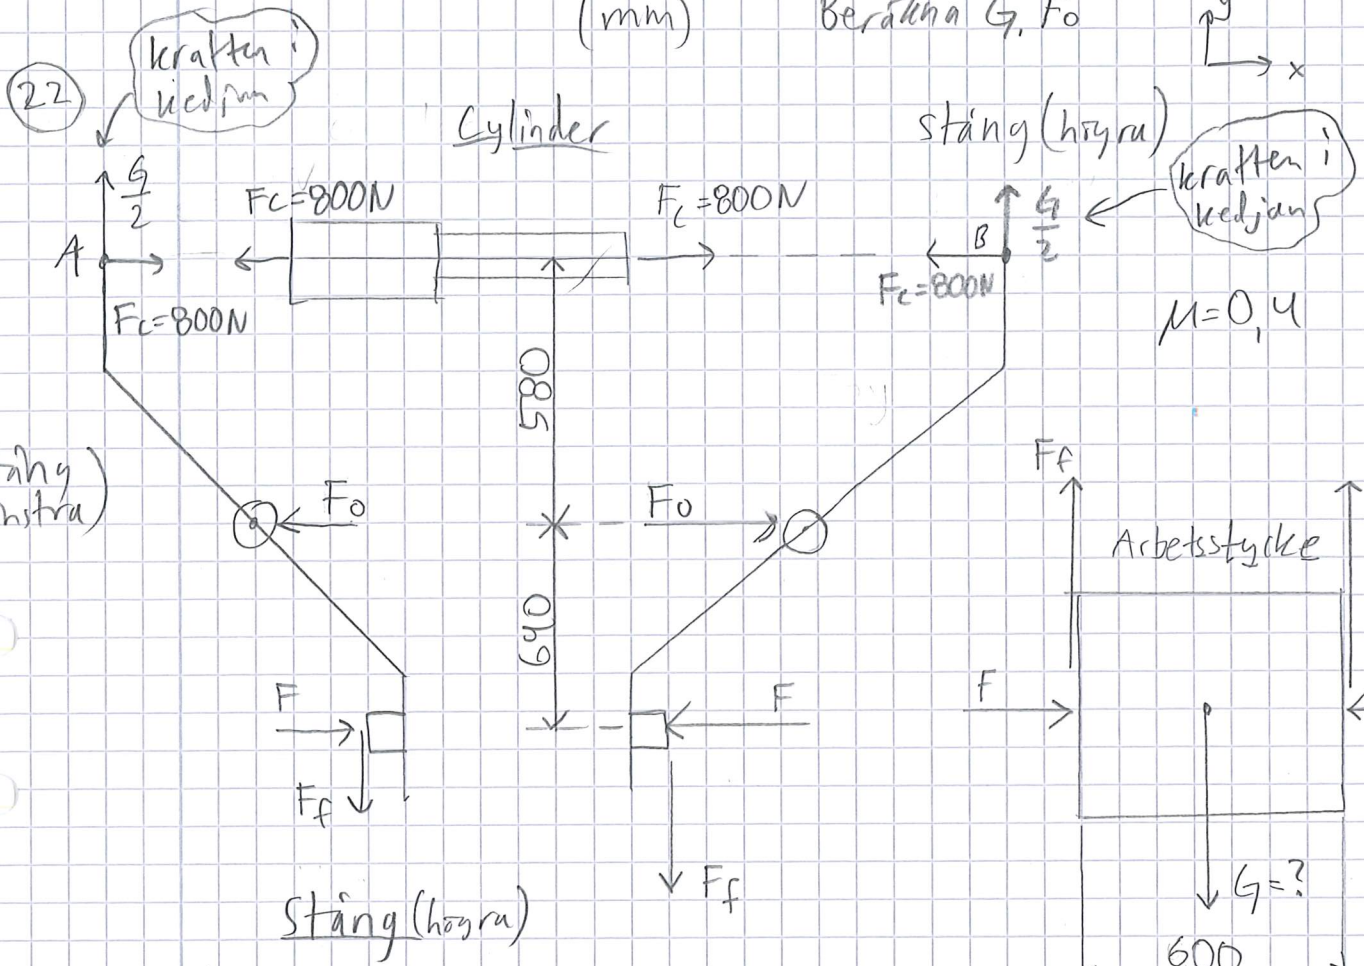 (mm) Beräkna G, Fo
y
x
22
kraften i
kedjan
Cylinder
Stång (högra)
kraften i
kedjan
G/2
Fc=800N
Fc=800N
G/2
A
B
Fc=800N
Fc=800N
μ=0,4
580
Ff
Fo
Fo
Arbetsstycke
640
F
F
F
Ff
Ff
G=?
Stång (högra)
600